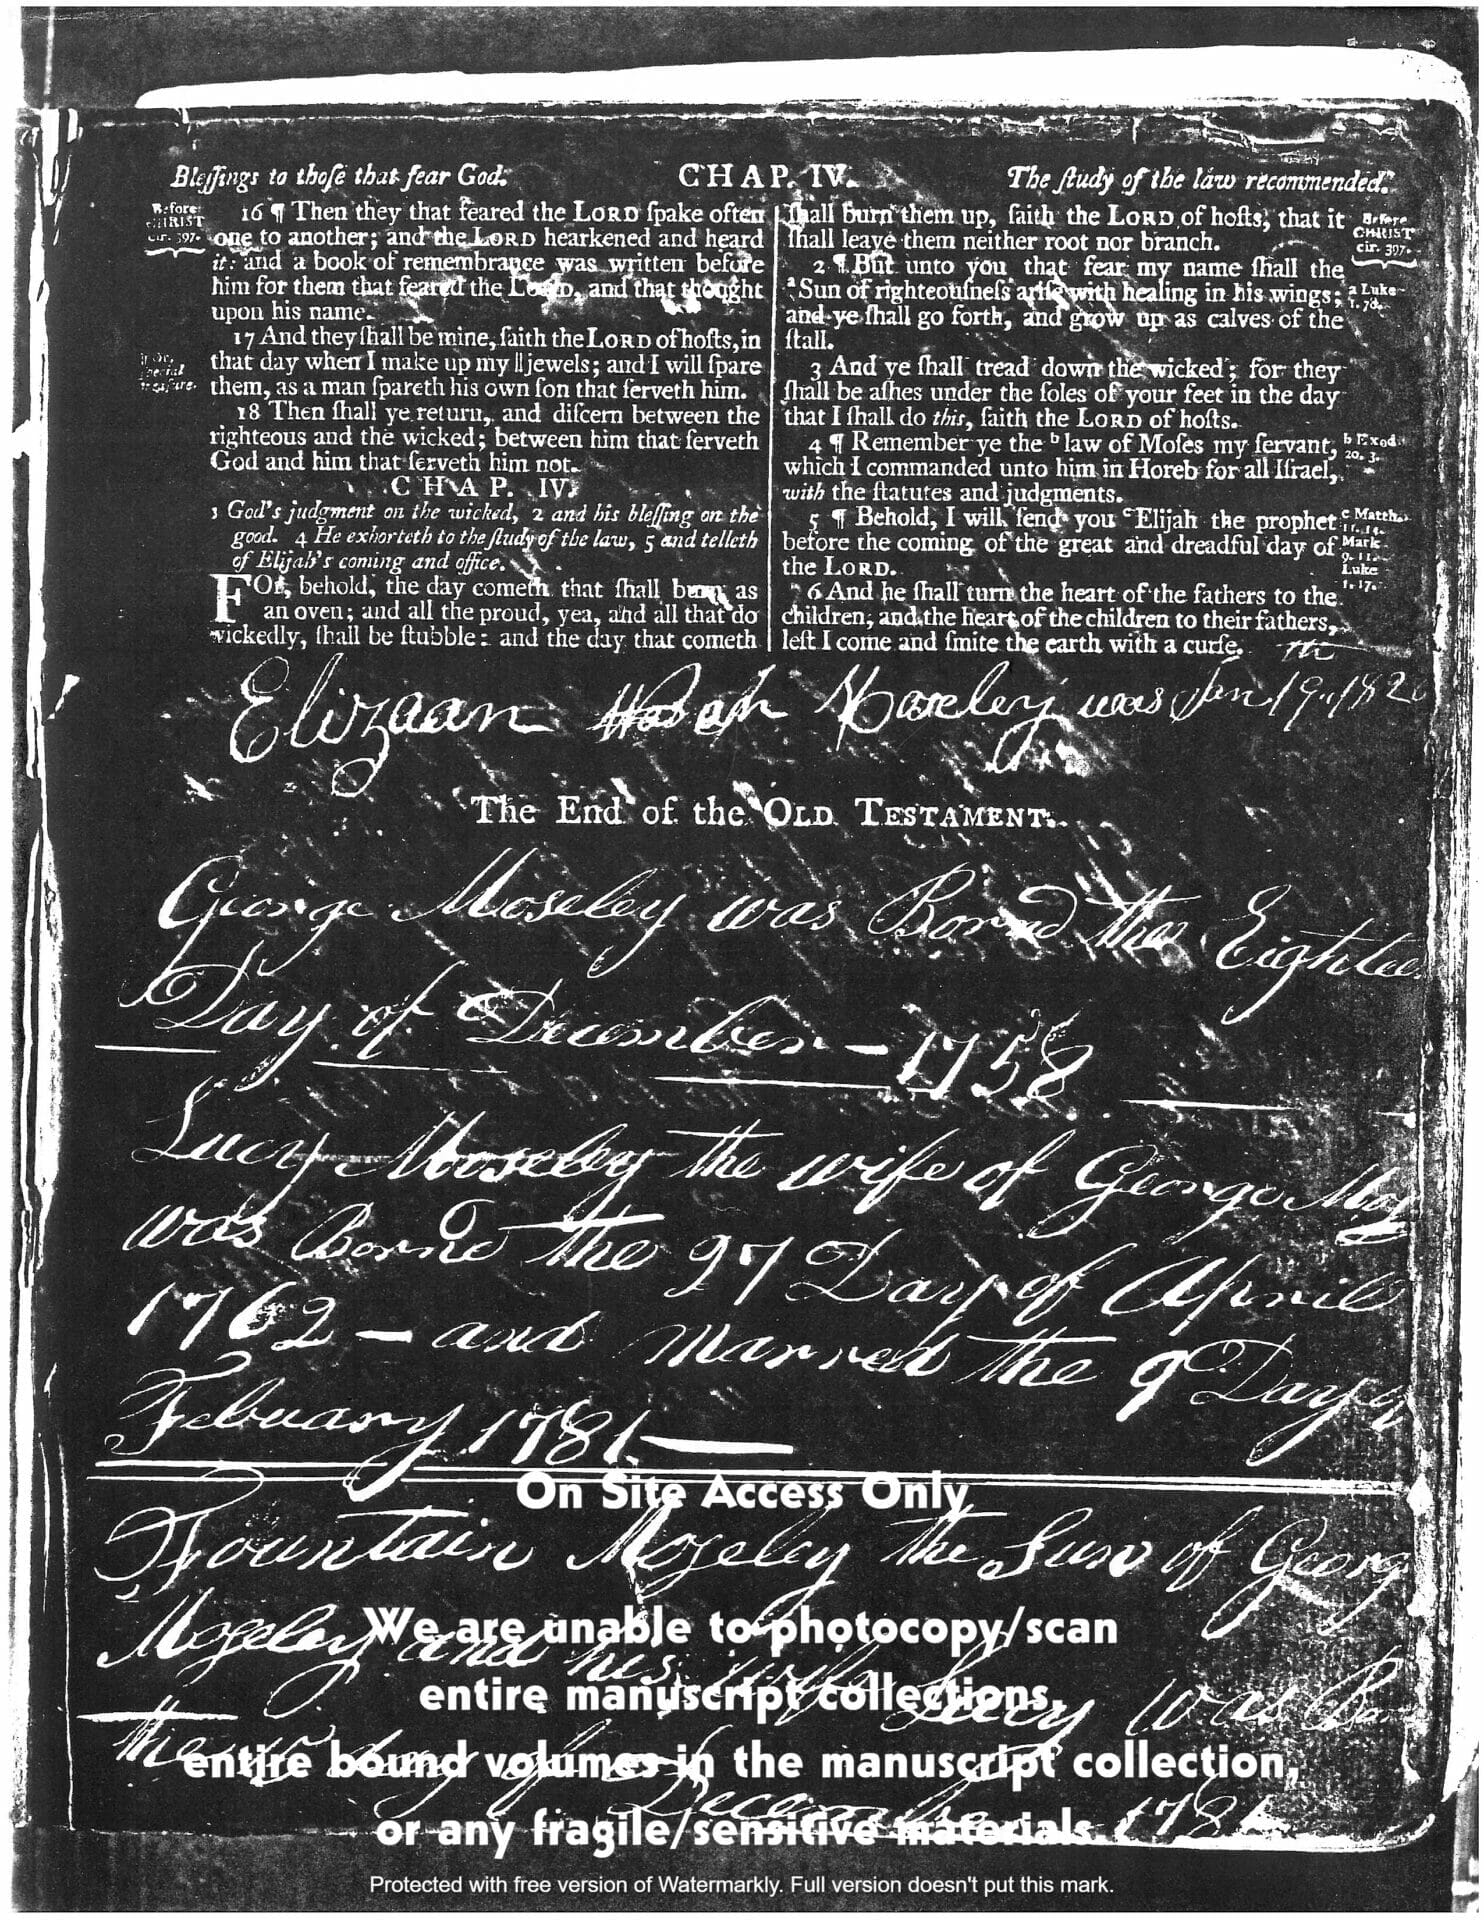 Bleſſings to thoſe that fear God. CHAP. IV. The ſtudy of the law recommended.
Before
CHRIST
cir. 397.
16 ¶ Then they that feared the LORD ſpake often
one to another; and the LORD hearkened and heard
it: and a book of remembrance was written before
him for them that feared the LORD, and that thought
upon his name.
17 And they ſhall be mine, ſaith the LORD of hoſts, in
that day when I make up my || jewels; and I will ſpare
them, as a man ſpareth his own ſon that ſerveth him.
|| Or,
ſpecial
treaſure.
18 Then ſhall ye return, and diſcern between the
righteous and the wicked; between him that ſerveth
God and him that ſerveth him not.
CHAP. IV.
1 God's judgment on the wicked, 2 and his bleſſing on the
good. 4 He exhorteth to the ſtudy of the law, 5 and telleth
of Elijah's coming and office.
FOr, behold, the day cometh that ſhall burn as
an oven; and all the proud, yea, and all that do
wickedly, ſhall be ſtubble: and the day that cometh
ſhall burn them up, ſaith the LORD of hoſts, that it
ſhall leave them neither root nor branch.
Before
CHRIST
cir. 397.
2 ¶ But unto you that fear my name ſhall the
a Sun of righteouſneſs ariſe with healing in his wings;
and ye ſhall go forth, and grow up as calves of the
ſtall.
a Luke
1. 78.
3 And ye ſhall tread down the wicked; for they
ſhall be aſhes under the ſoles of your feet in the day
that I ſhall do this, ſaith the LORD of hoſts.
4 ¶ Remember ye the b law of Moſes my ſervant,
which I commanded unto him in Horeb for all Iſrael,
with the ſtatutes and judgments.
b Exod.
20. 3.
5 ¶ Behold, I will ſend you c Elijah the prophet
before the coming of the great and dreadful day of
the LORD.
c Matth.
11. 14.
Mark
9. 11.
Luke
1. 17.
6 And he ſhall turn the heart of the fathers to the
children, and the heart of the children to their fathers,
leſt I come and ſmite the earth with a curſe.
Elizaan Moseley was Jan 19th 182
The End of the OLD TESTAMENT.
George Moseley was Borned the Eightee
Day of December – 1758
Lucy Moseley the wife of George Mos
was Borne the 27 Day of April
1762 – and Marred the 9 Day of
Febuary 1781
Fountain Mozeley the Sun of Georg
Mozeley and his wife Lucy was Bor
the day of December 1781
On Site Access Only
We are unable to photocopy/scan
entire manuscript collections,
entire bound volumes in the manuscript collection,
or any fragile/sensitive materials.
Protected with free version of Watermarkly. Full version doesn't put this mark.